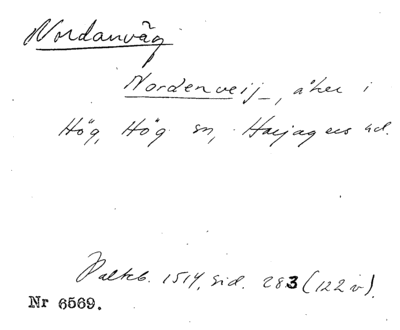 Nordanväg
Nordenveij, åker i
Hög, Hög sn, Harjagers hd.
Paltb. 1514, sid. 283 (122 v).
Nr 6569.